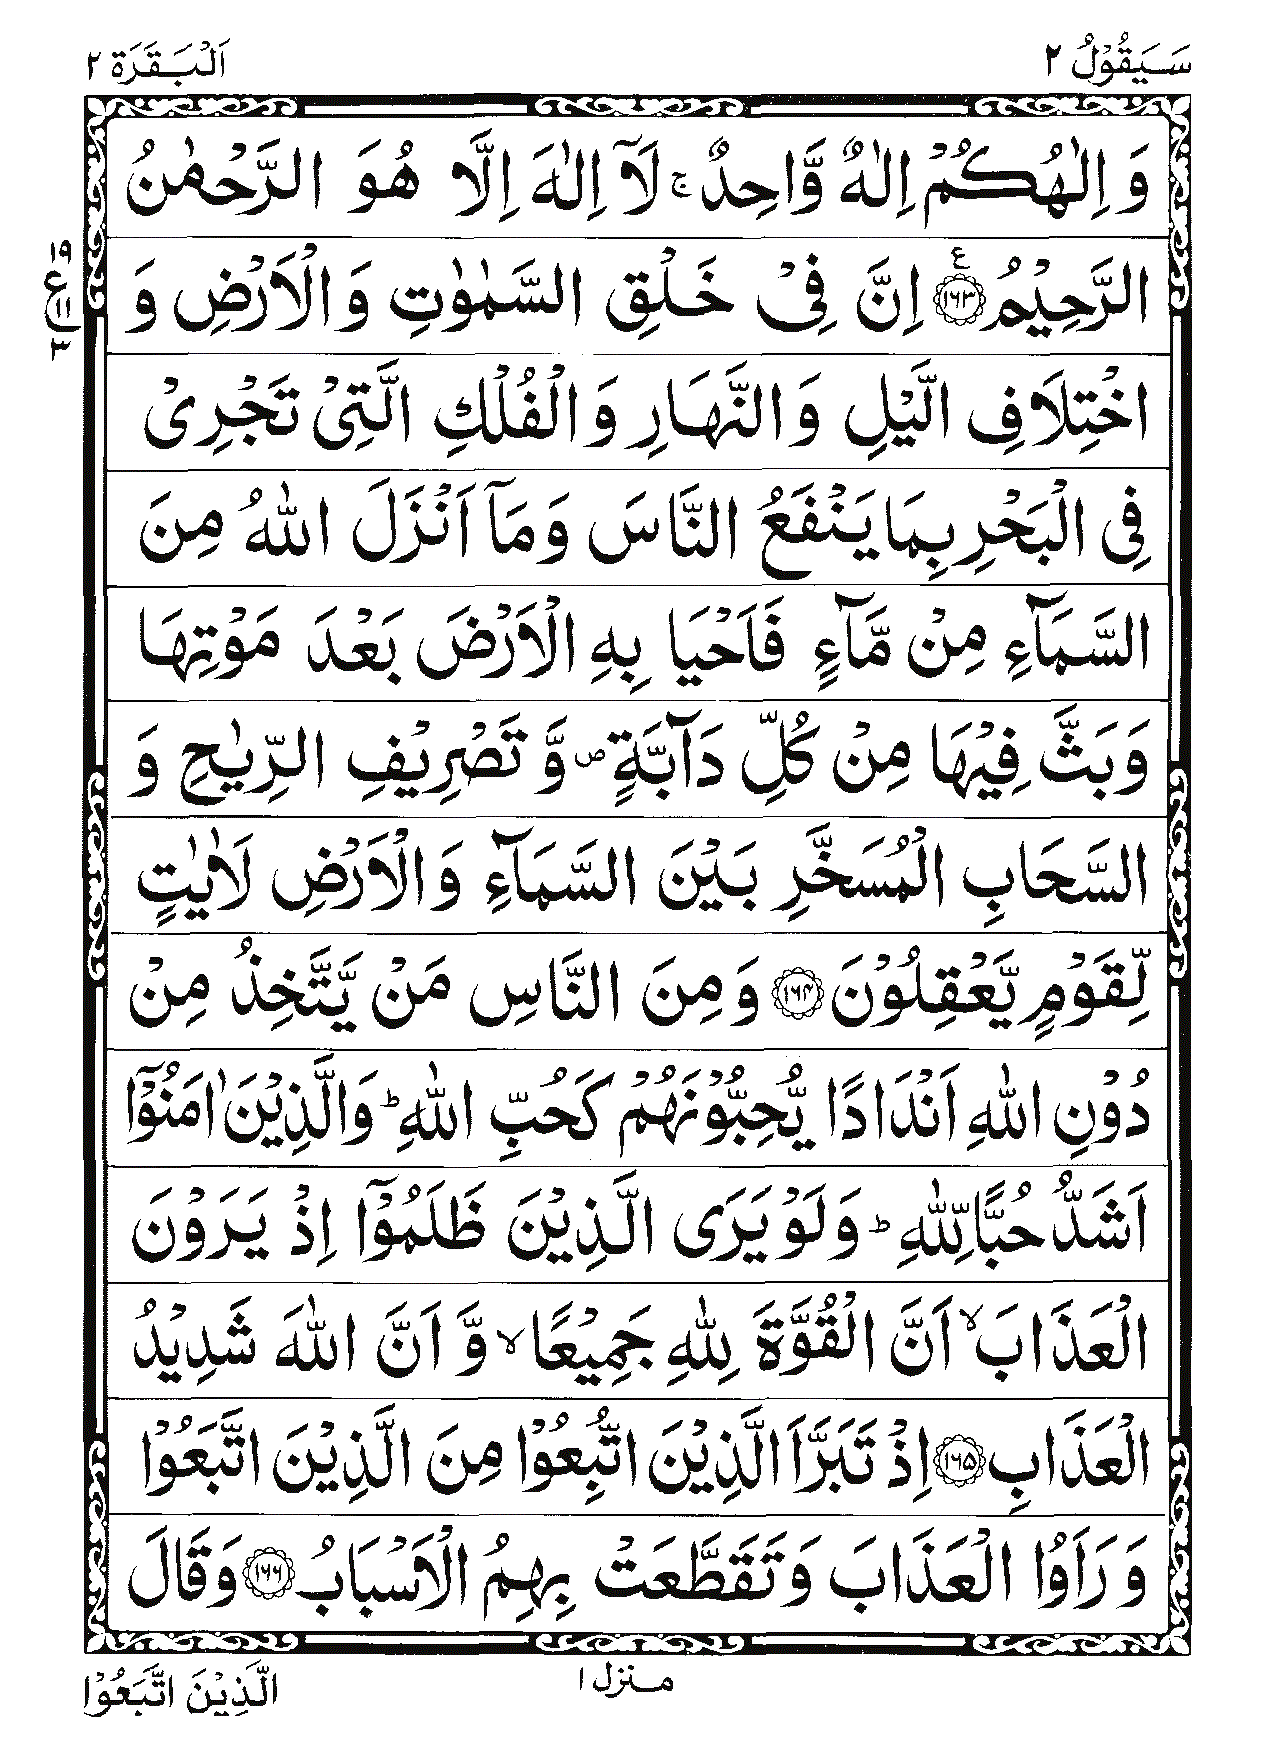 سَيَقُوْلُ ٢
اَلْبَقَرَة ٢
وَ اِلٰهُكُمْ اِلٰهٌ وَّاحِدٌ ۚ لَآ اِلٰهَ اِلَّا هُوَ الرَّحْمٰنُ
الرَّحِيْمُ ﴿١٦٣﴾ ع اِنَّ فِيْ خَلْقِ السَّمٰوٰتِ وَ الْاَرْضِ وَ
١٩
ع
١١
٣
اخْتِلَافِ الَّيْلِ وَ النَّهَارِ وَ الْفُلْكِ الَّتِيْ تَجْرِيْ
فِي الْبَحْرِ بِمَا يَنْفَعُ النَّاسَ وَ مَآ اَنْزَلَ اللّٰهُ مِنَ
السَّمَآءِ مِنْ مَّآءٍ فَاَحْيَا بِهِ الْاَرْضَ بَعْدَ مَوْتِهَا
وَ بَثَّ فِيْهَا مِنْ كُلِّ دَآبَّةٍ ص وَّ تَصْرِيْفِ الرِّيٰحِ وَ
السَّحَابِ الْمُسَخَّرِ بَيْنَ السَّمَآءِ وَ الْاَرْضِ لَاٰيٰتٍ
لِّقَوْمٍ يَّعْقِلُوْنَ ﴿١٦٤﴾ وَ مِنَ النَّاسِ مَنْ يَّتَّخِذُ مِنْ
دُوْنِ اللّٰهِ اَنْدَادًا يُّحِبُّوْنَهُمْ كَحُبِّ اللّٰهِ ؕ وَالَّذِيْنَ اٰمَنُوْۤا
اَشَدُّ حُبًّا لِّلّٰهِ ؕ وَ لَوْ يَرَى الَّذِيْنَ ظَلَمُوْۤا اِذْ يَرَوْنَ
الْعَذَابَ ۙ اَنَّ الْقُوَّةَ لِلّٰهِ جَمِيْعًا ۙ وَّ اَنَّ اللّٰهَ شَدِيْدُ
الْعَذَابِ ﴿١٦٥﴾ اِذْ تَبَرَّاَ الَّذِيْنَ اتُّبِعُوْا مِنَ الَّذِيْنَ اتَّبَعُوْا
وَ رَاَوُا الْعَذَابَ وَ تَقَطَّعَتْ بِهِمُ الْاَسْبَابُ ﴿١٦٦﴾ وَ قَالَ
منزل ١
الَّذِيْنَ اتَّبَعُوْا